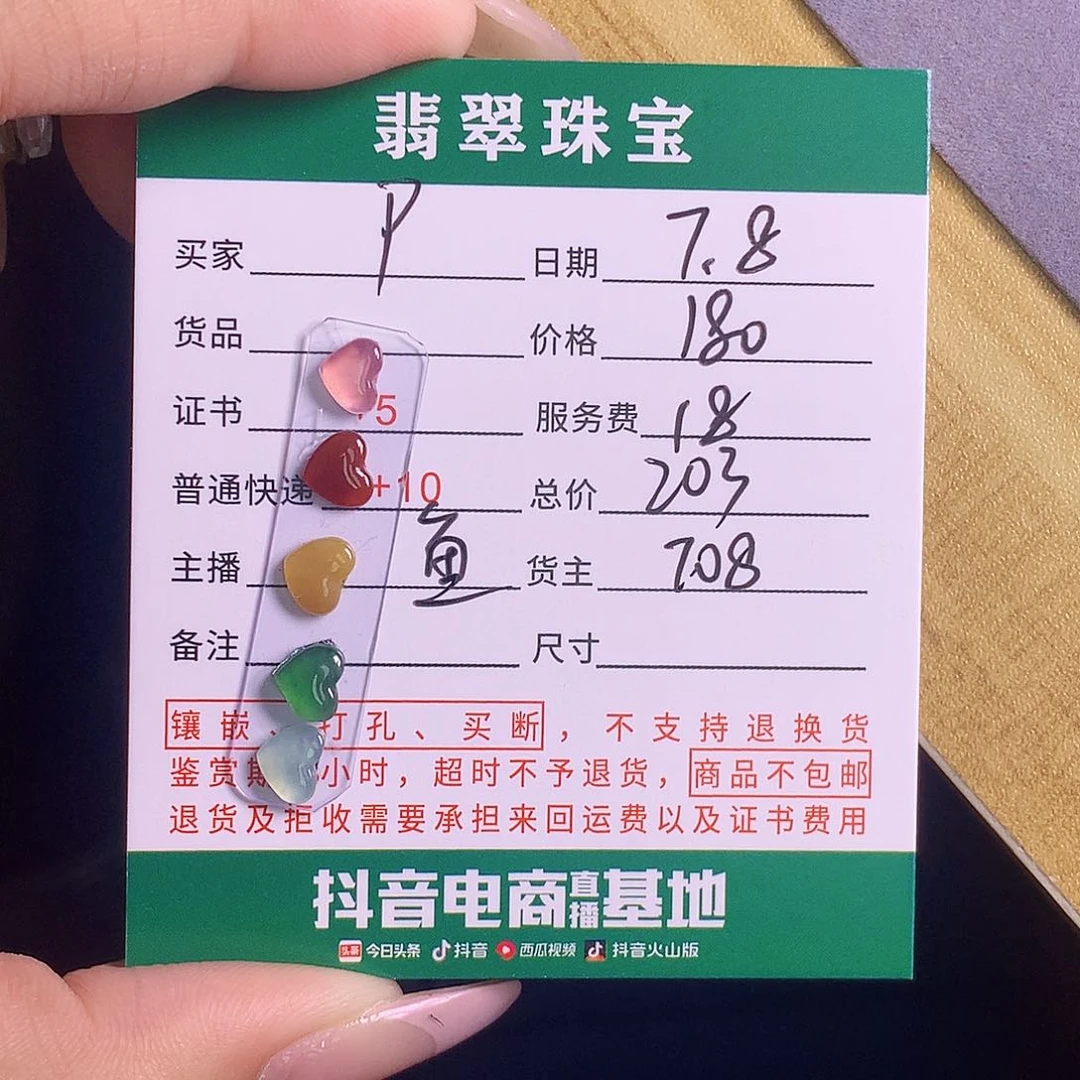 翡翠珠宝
买家 P 日期 7.8
货品 价格 180
证书 +5 服务费 18
普通快递 +10 总价 203
主播 鱼 货主 708
备注 尺寸
镶嵌、打孔、买断，不支持退换货
鉴赏期 小时，超时不予退货，商品不包邮
退货及拒收需要承担来回运费以及证书费用
抖音电商直播基地
头条 今日头条 抖音 西瓜视频 抖音火山版